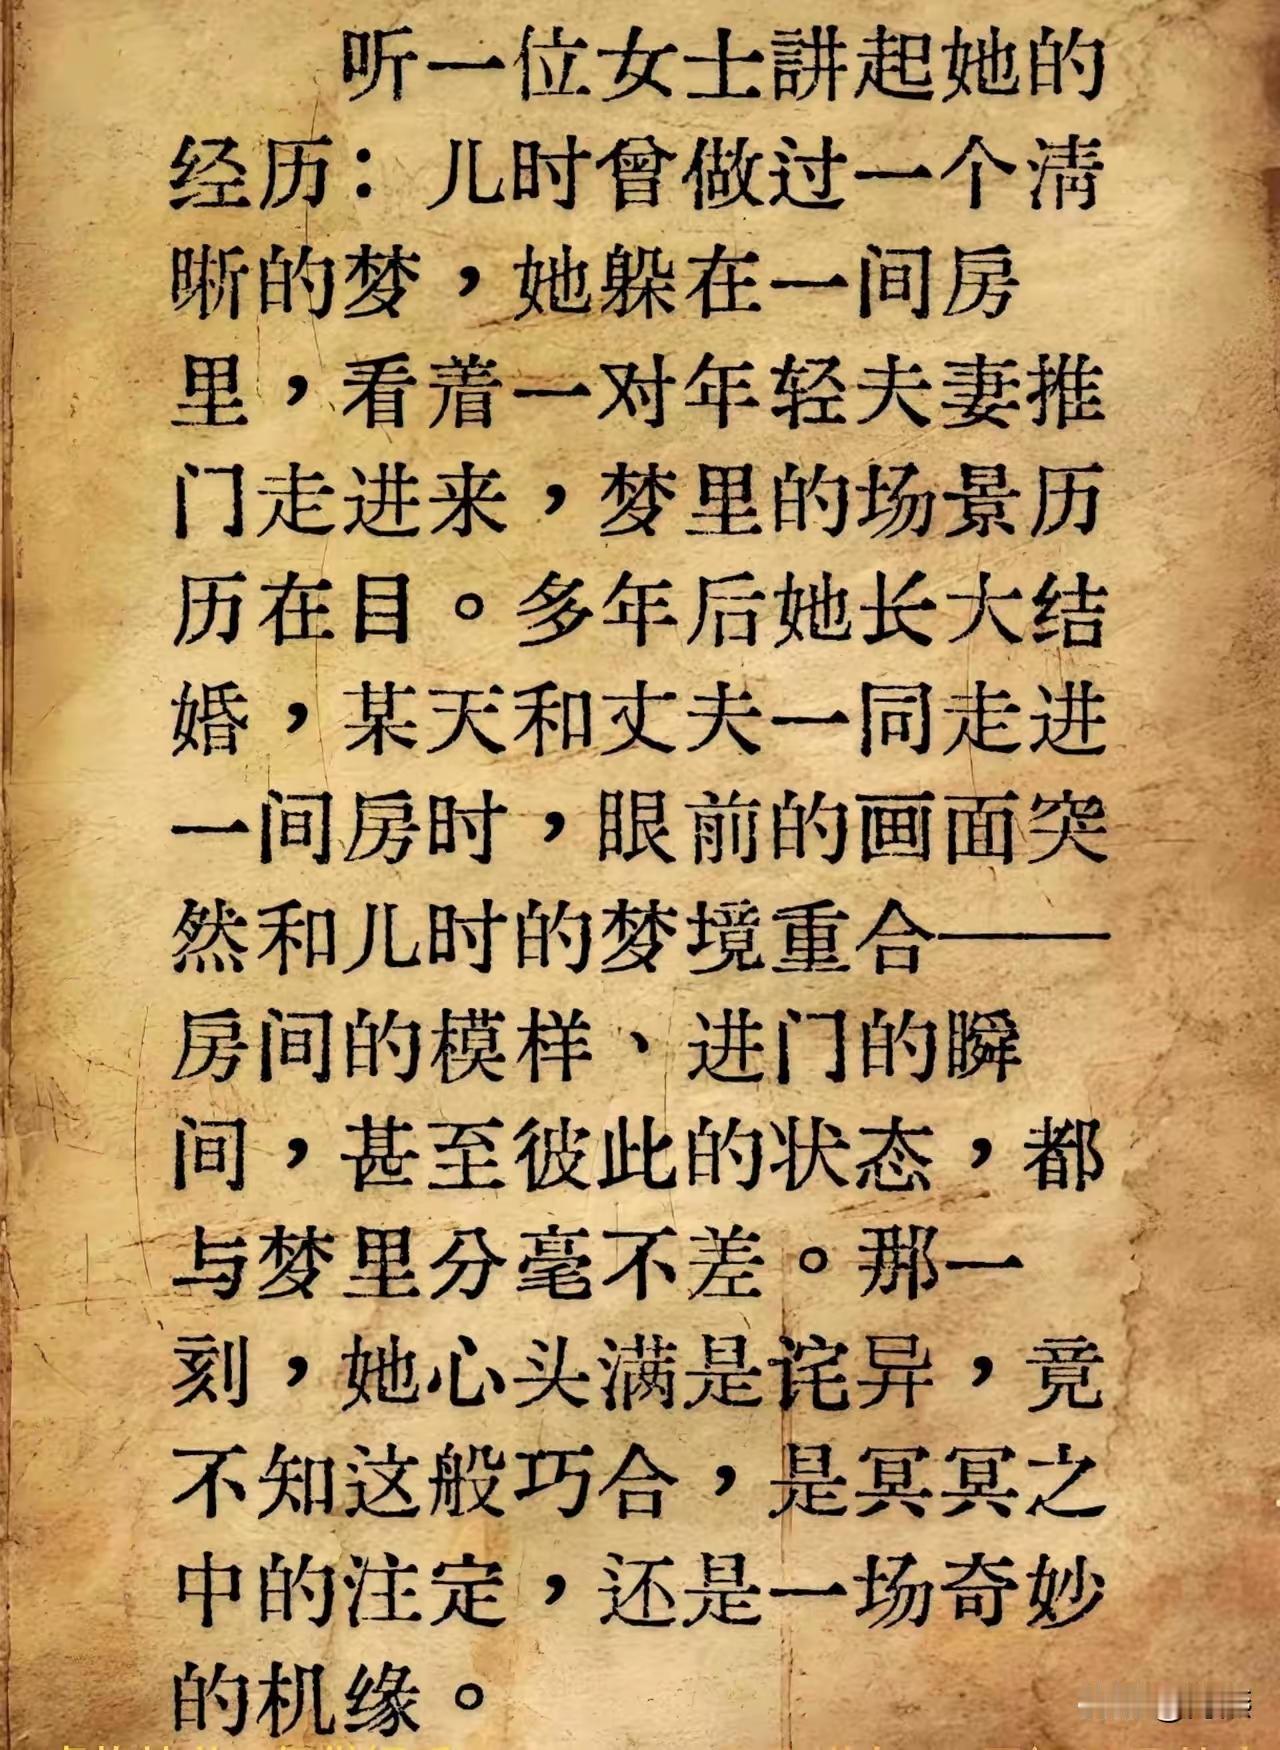 听一位女士講起她的
经历：儿时曾做过一个清
晰的梦，她躲在一间房
里，看着一对年轻夫妻推
门走进来，梦里的场景历
历在目。多年后她长大结
婚，某天和丈夫一同走进
一间房时，眼前的画面突
然和儿时的梦境重合——
房间的模样、进门的瞬
间，甚至彼此的状态，都
与梦里分毫不差。那一
刻，她心头满是诧异，竟
不知这般巧合，是冥冥之
中的注定，还是一场奇妙
的机缘。